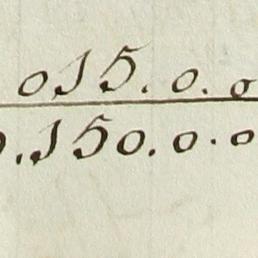 015.0.0
0.150.0.0